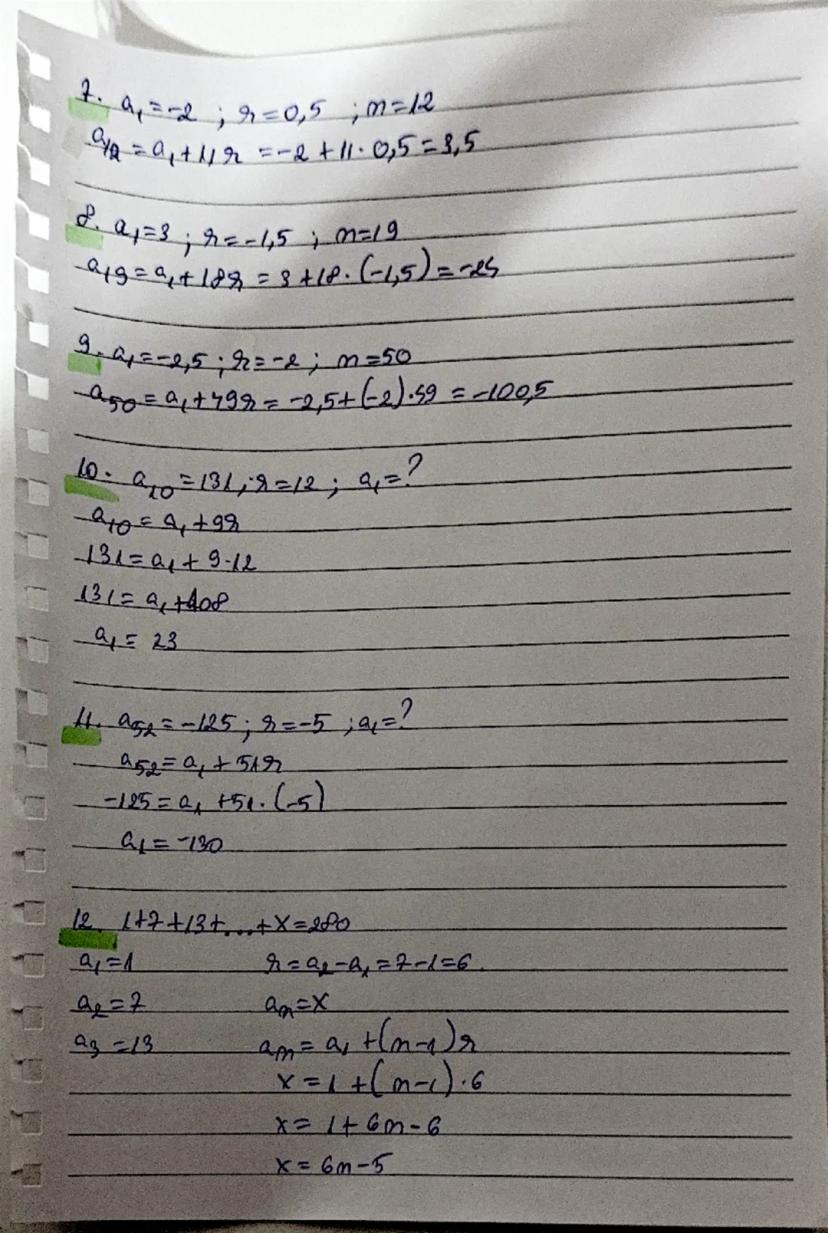 7. a₁=-2 ; r=0,5 ; n=12
a₁₂=a₁+11r=-2+11·0,5=3,5
8. a₁=3 ; r=-1,5 ; n=19
a₁₉=a₁+18r=3+18·(-1,5)=-24
9. a₁=-2,5 ; r=-2 ; n=50
a₅₀=a₁+49r=-2,5+(-2)·49=-100,5
10. a₁₀=131 ; r=12 ; a₁=?
a₁₀=a₁+9r
131=a₁+9·12
131=a₁+108
a₁=23
11. a₅₂=-125 ; r=-5 ; a₁=?
a₅₂=a₁+51r
-125=a₁+51·(-5)
a₁=-130
12. 1+7+13+...+x=280
a₁=1 r=a₂-a₁=7-1=6
a₂=7 aₙ=x
a₃=13 aₙ=a₁+(n-1)r
x=1+(n-1)·6
x=1+6n-6
x=6n-5